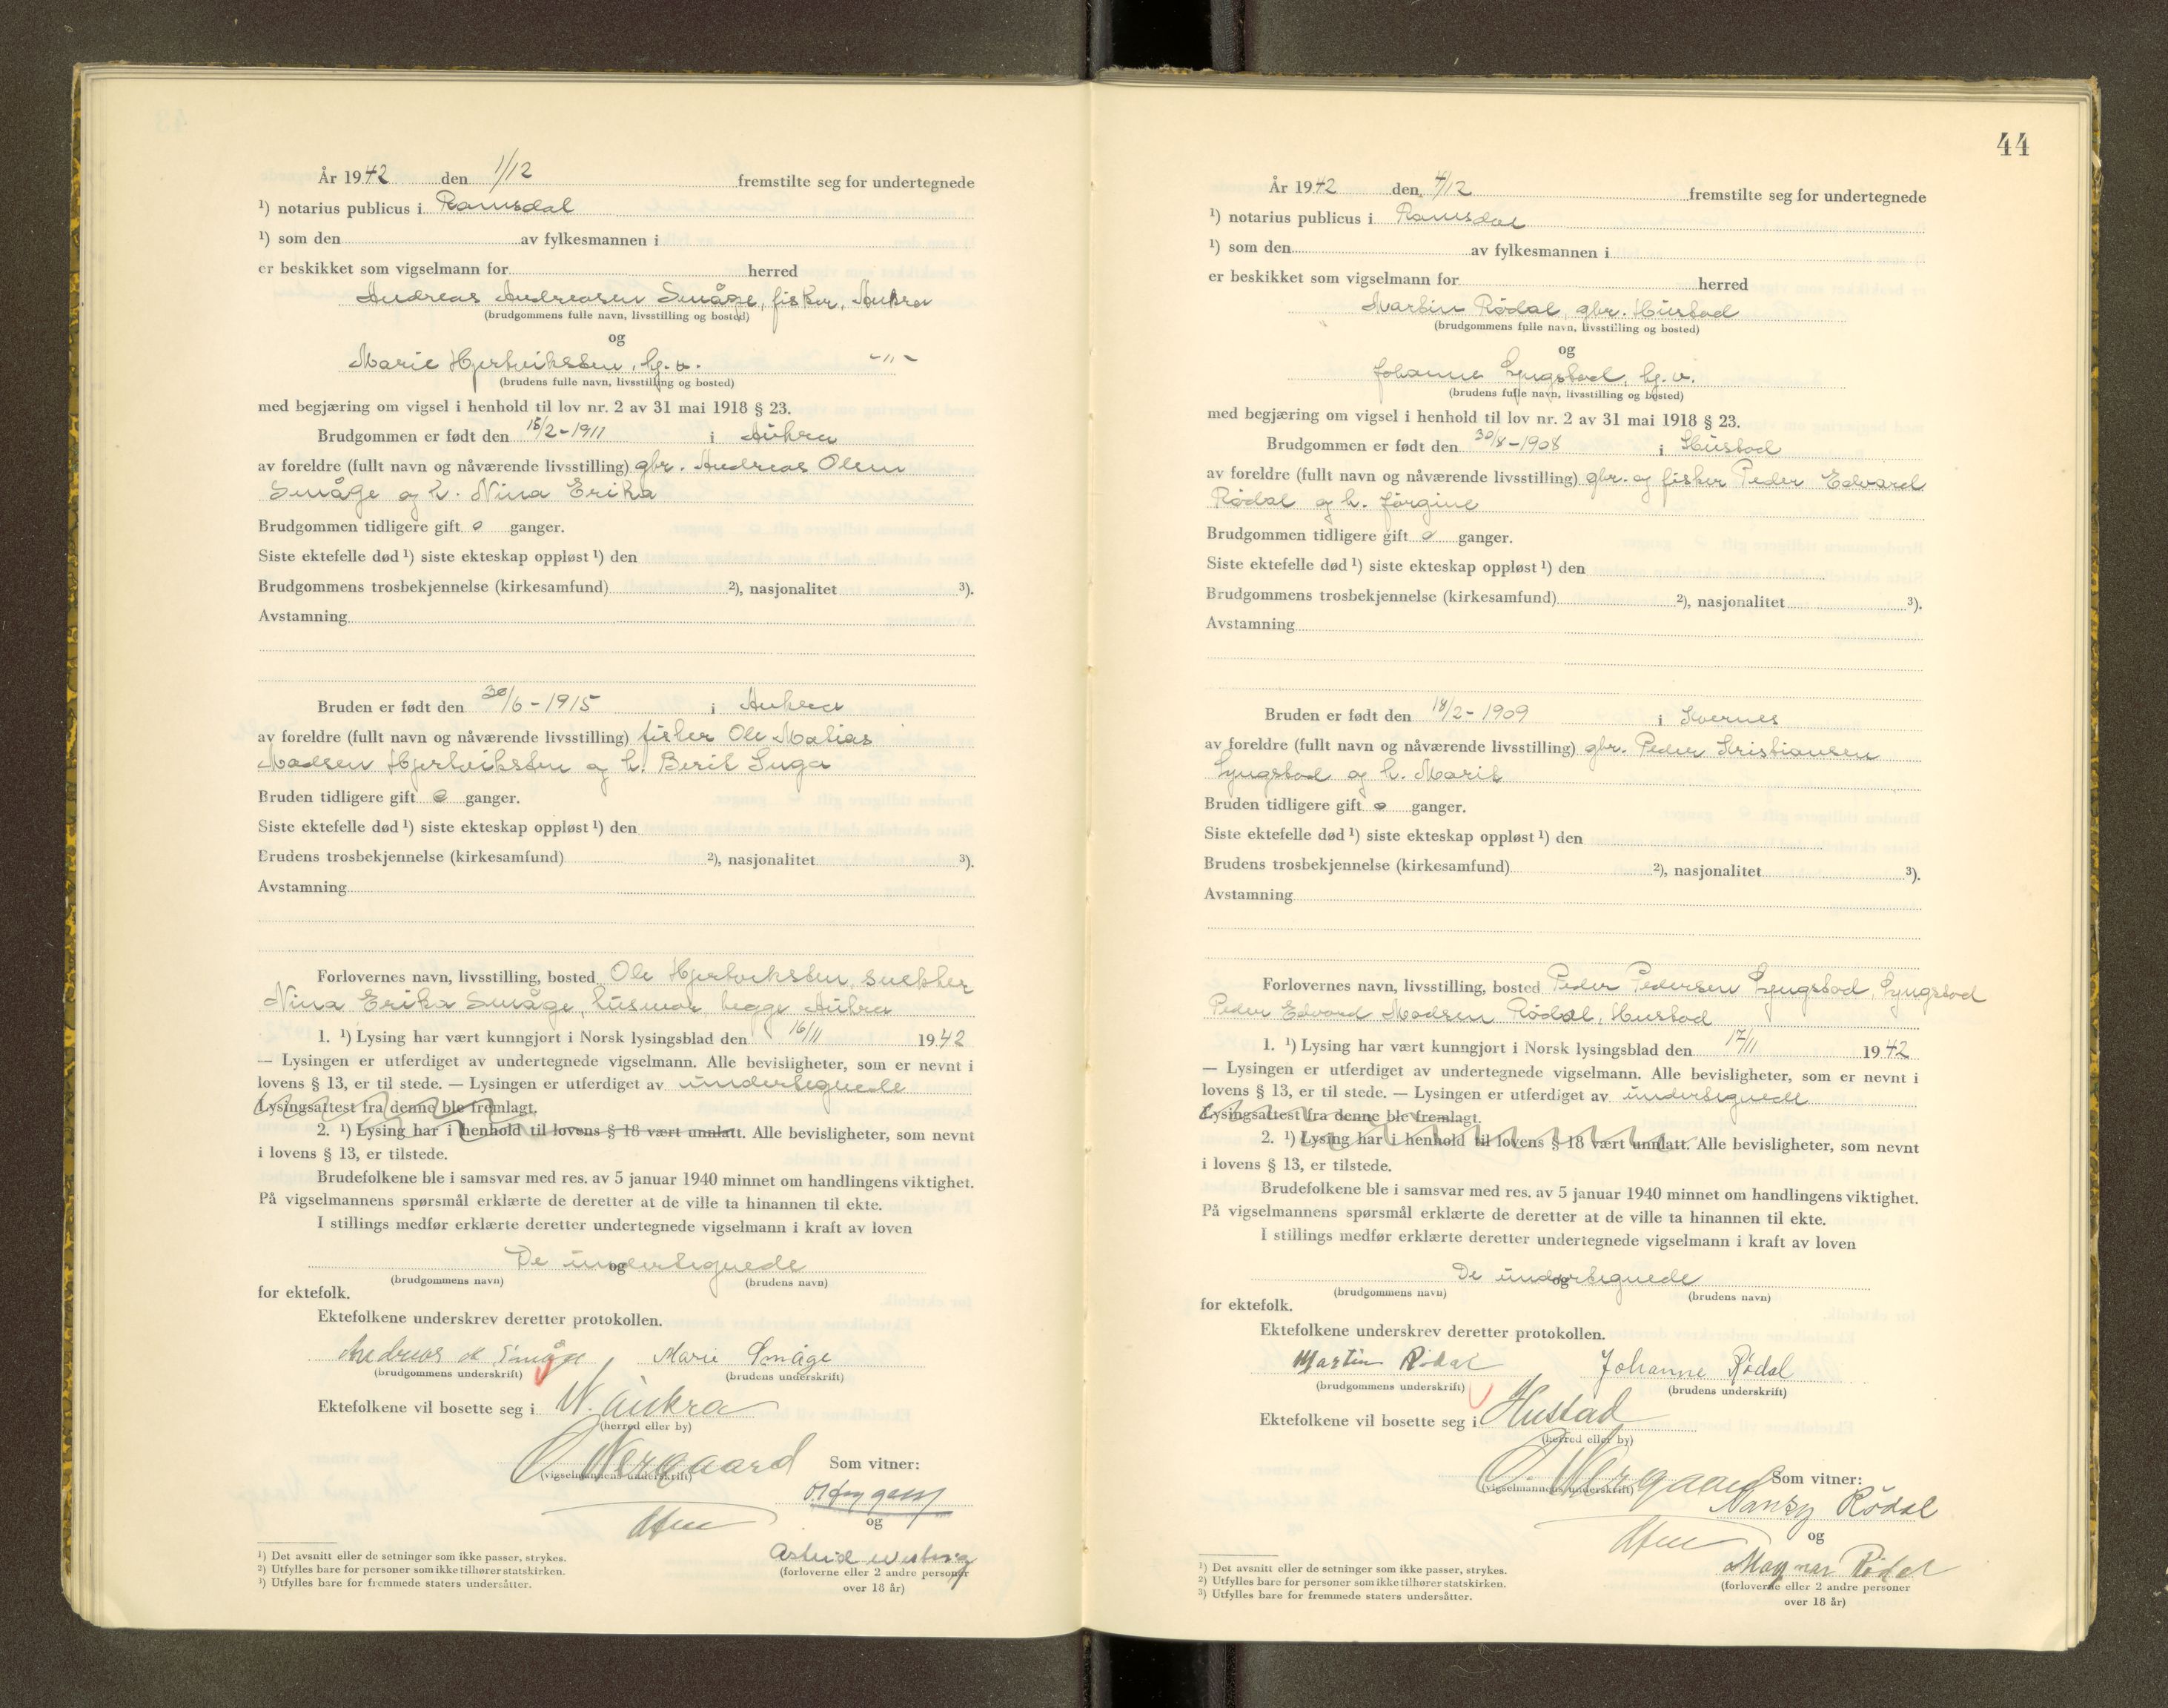 År 1942 den 1/12 fremstilte seg for undertegnede
¹) notarius publicus i Romsdal
¹) som den av fylkesmannen i
er beskikket som vigselmann for herred
Andreas Andreasen Småge, fisker, Aukra
(brudgommens fulle navn, livsstilling og bosted)
og
Marie Hjertviksten, hj.v. -"-
(brudens fulle navn, livsstilling og bosted)
med begjæring om vigsel i henhold til lov nr. 2 av 31 mai 1918 § 23.
Brudgommen er født den 15/2-1911 i Aukra
av foreldre (fullt navn og nåværende livsstilling) gbr. Andreas Olsen
Småge og h. Nina Erika
Brudgommen tidligere gift 0 ganger.
Siste ektefelle død ¹) siste ekteskap oppløst ¹) den
Brudgommens trosbekjennelse (kirkesamfund) ²), nasjonalitet ³).
Avstamning
Bruden er født den 30/6-1915 i Aukra
av foreldre (fullt navn og nåværende livsstilling) fisker Ole Matias
Madsen Hjertviksten og h. Berit Inga
Bruden tidligere gift 0 ganger.
Siste ektefelle død ¹) siste ekteskap oppløst ¹) den
Brudens trosbekjennelse (kirkesamfund) ²), nasjonalitet ³).
Avstamning
Forlovernes navn, livsstilling, bosted Ole Hjertviksten, snekker
Nina Erika Småge, husmor, begge Aukra
1. ¹) Lysing har vært kunngjort i Norsk lysingsblad den 16/11 1942
— Lysingen er utferdiget av undertegnede vigselmann. Alle bevisligheter, som er nevnt i
lovens § 13, er til stede. — Lysingen er utferdiget av undertegnede
Lysingsattest fra denne ble fremlagt.
2. ¹) Lysing har i henhold til lovens § 18 vært unnlatt. Alle bevisligheter, som nevnt
i lovens § 13, er tilstede.
Brudefolkene ble i samsvar med res. av 5 januar 1940 minnet om handlingens viktighet.
På vigselmannens spørsmål erklærte de deretter at de ville ta hinannen til ekte.
I stillings medfør erklærte deretter undertegnede vigselmann i kraft av loven
De undertegnede
og
(brudgommens navn) (brudens navn)
for ektefolk.
Ektefolkene underskrev deretter protokollen.
Andreas A Småge Marie Småge
(brudgommens underskrift) (brudens underskrift)
Ektefolkene vil bosette seg i N. Aukra
(herred eller by)
O. Nergaard Som vitner:
(vigselmannens underskrift)
og
Astrid
(forloverne eller 2 andre personer
over 18 år)
¹) Det avsnitt eller de setninger som ikke passer, strykes.
²) Utfylles bare for personer som ikke tilhører statskirken.
³) Utfylles bare for fremmede staters undersåtter.
44
År 1942 den 4/12 fremstilte seg for undertegnede
¹) notarius publicus i Romsdal
¹) som den av fylkesmannen i
er beskikket som vigselmann for herred
Martin Rødal, gbr. Hustad
(brudgommens fulle navn, livsstilling og bosted)
og
Johanne Lyngstad, hj.v.
(brudens fulle navn, livsstilling og bosted)
med begjæring om vigsel i henhold til lov nr. 2 av 31 mai 1918 § 23.
Brudgommen er født den 30/8-1908 i Hustad
av foreldre (fullt navn og nåværende livsstilling) gbr. og fisker Peder Edvard
Rødal og h. Jørgine
Brudgommen tidligere gift 0 ganger.
Siste ektefelle død ¹) siste ekteskap oppløst ¹) den
Brudgommens trosbekjennelse (kirkesamfund) ²), nasjonalitet ³).
Avstamning
Bruden er født den 18/2-1909 i Kvernes
av foreldre (fullt navn og nåværende livsstilling) gbr. Peder Kristiansen
Lyngstad og h. Marit
Bruden tidligere gift 0 ganger.
Siste ektefelle død ¹) siste ekteskap oppløst ¹) den
Brudens trosbekjennelse (kirkesamfund) ²), nasjonalitet ³).
Avstamning
Forlovernes navn, livsstilling, bosted Peder Pedersen Lyngstad, Lyngstad
Peder Edvard Madsen Rødal, Hustad
1. ¹) Lysing har vært kunngjort i Norsk lysingsblad den 17/11 1942
— Lysingen er utferdiget av undertegnede vigselmann. Alle bevisligheter, som er nevnt i
lovens § 13, er til stede. — Lysingen er utferdiget av undertegnede
Lysingsattest fra denne ble fremlagt.
2. ¹) Lysing har i henhold til lovens § 18 vært unnlatt. Alle bevisligheter, som nevnt
i lovens § 13, er tilstede.
Brudefolkene ble i samsvar med res. av 5 januar 1940 minnet om handlingens viktighet.
På vigselmannens spørsmål erklærte de deretter at de ville ta hinannen til ekte.
I stillings medfør erklærte deretter undertegnede vigselmann i kraft av loven
De undertegnede
og
(brudgommens navn) (brudens navn)
for ektefolk.
Ektefolkene underskrev deretter protokollen.
Martin Rødal Johanne Rødal
(brudgommens underskrift) (brudens underskrift)
Ektefolkene vil bosette seg i Hustad
(herred eller by)
O. Nergaard Som vitner:
(vigselmannens underskrift)
Nansy Rødal
og
Magnar Rødal
(forloverne eller 2 andre personer
over 18 år)
¹) Det avsnitt eller de setninger som ikke passer, strykes.
²) Utfylles bare for personer som ikke tilhører statskirken.
³) Utfylles bare for fremmede staters undersåtter.